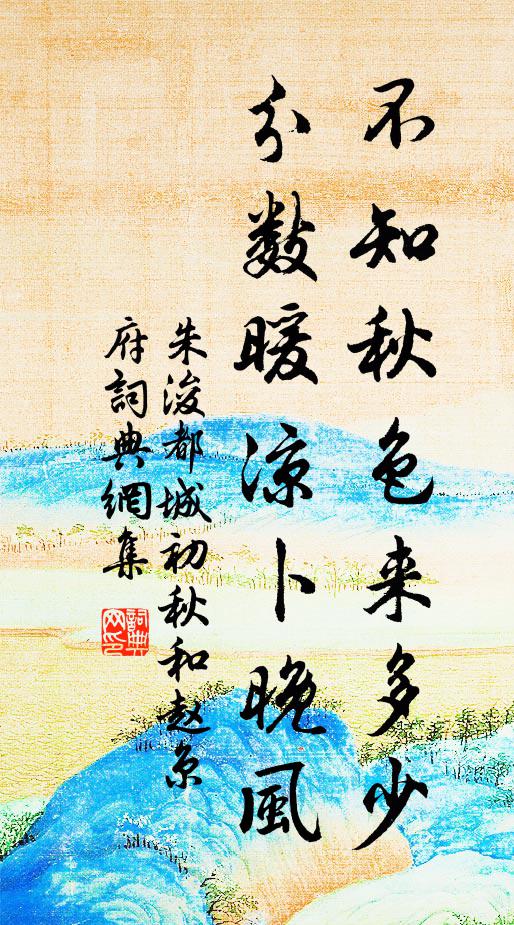 不知秋色来多少
分数暖凉卜晚風
朱浚都城初秋和赵京
府詞典網集
詞典网印